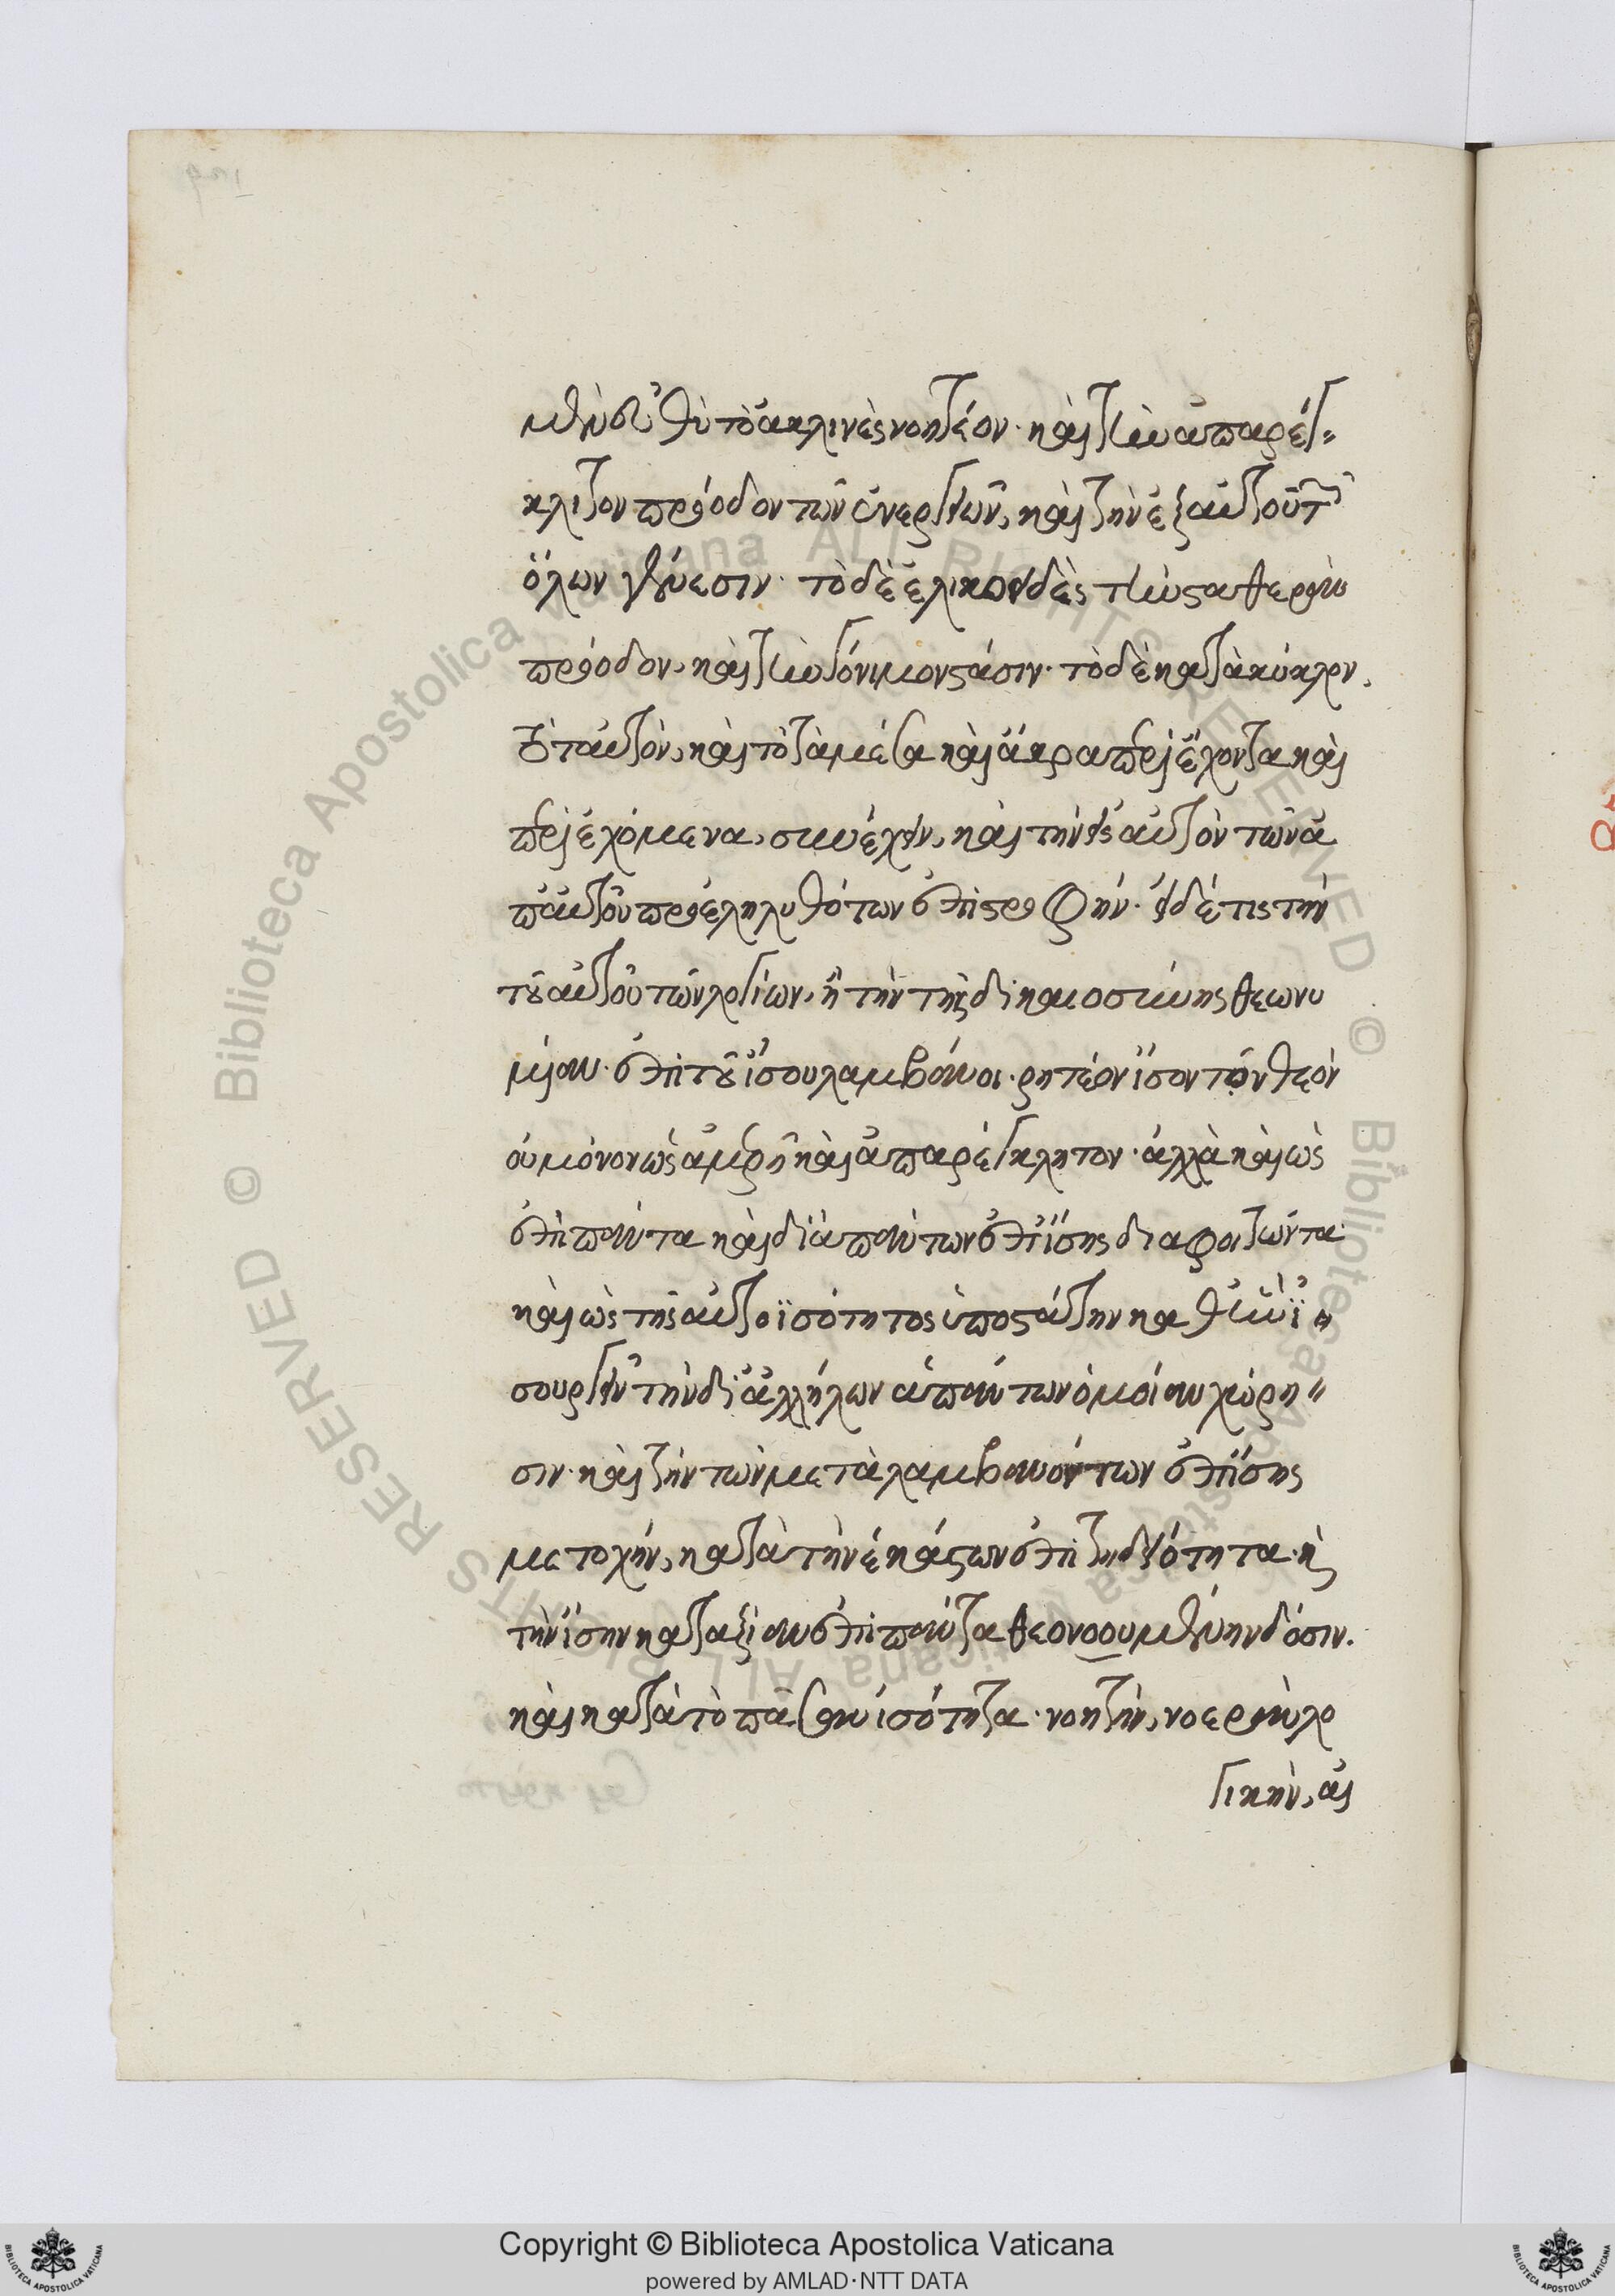 μὲν εὐθὺ τὸ ἀκλινὲς νοητέον· καὶ τὴν ἀπαρέγ-
κλιτον πρόοδον τῶν ἐνεργειῶν, καὶ τὴν ἐξ αὐτοῦ τῶν
ὅλων γένεσιν· τὸ δὲ ἑλικοειδὲς τὴν σταθερὰν
πρόοδον, καὶ τὴν γόνιμον στάσιν· τὸ δὲ κατὰ κύκλον,
τὸ ταὐτὸν, καὶ τὸ τὰ μέσα καὶ ἄκρα περιέχοντα καὶ
περιεχόμενα, συνέχειν, καὶ τὴν εἰς αὐτὸν τῶν ἀ
π' αὐτοῦ προεληλυθότων ἐπιστροφήν· εἰ δέ τις τὴν
τοῦ αὐτοῦ τῶν λογίων, ἢ τὴν τῆς δικαιοσύνης θεωνυ
μίαν· ἐπὶ τοῦ ἴσου λαμβάνοι· ῥητέον ἴσον τὸν θεὸν
οὐ μόνον ὡς ἀμερῆ καὶ ἀπαρέγκλητον· ἀλλὰ καὶ ὡς
ἐπὶ πάντα καὶ διὰ πάντων ἐπίσης διαφοιτῶντα·
καὶ ὡς τῆς αὐτοϊσότητος ὑποστάτην καθ' ἣν ἰ-
σουργεῖ τὴν δι' ἀλλήλων ἁπάντων ὁμοίαν χώρη-
σιν· καὶ τὴν τῶν μεταλαμβανόντων ἐπίσης
μετοχήν, κατὰ τὴν ἑκάστων ἐπιτηδειότητα· καὶ
τὴν ἴσην κατ' ἀξίαν ἐπὶ πάντα θεονοουμένην δόσιν.
καὶ κατὰ τὸ πᾶσαν ἰσότητα· νοητὴν, νοερὰν, λο
γικὴν, αἰ